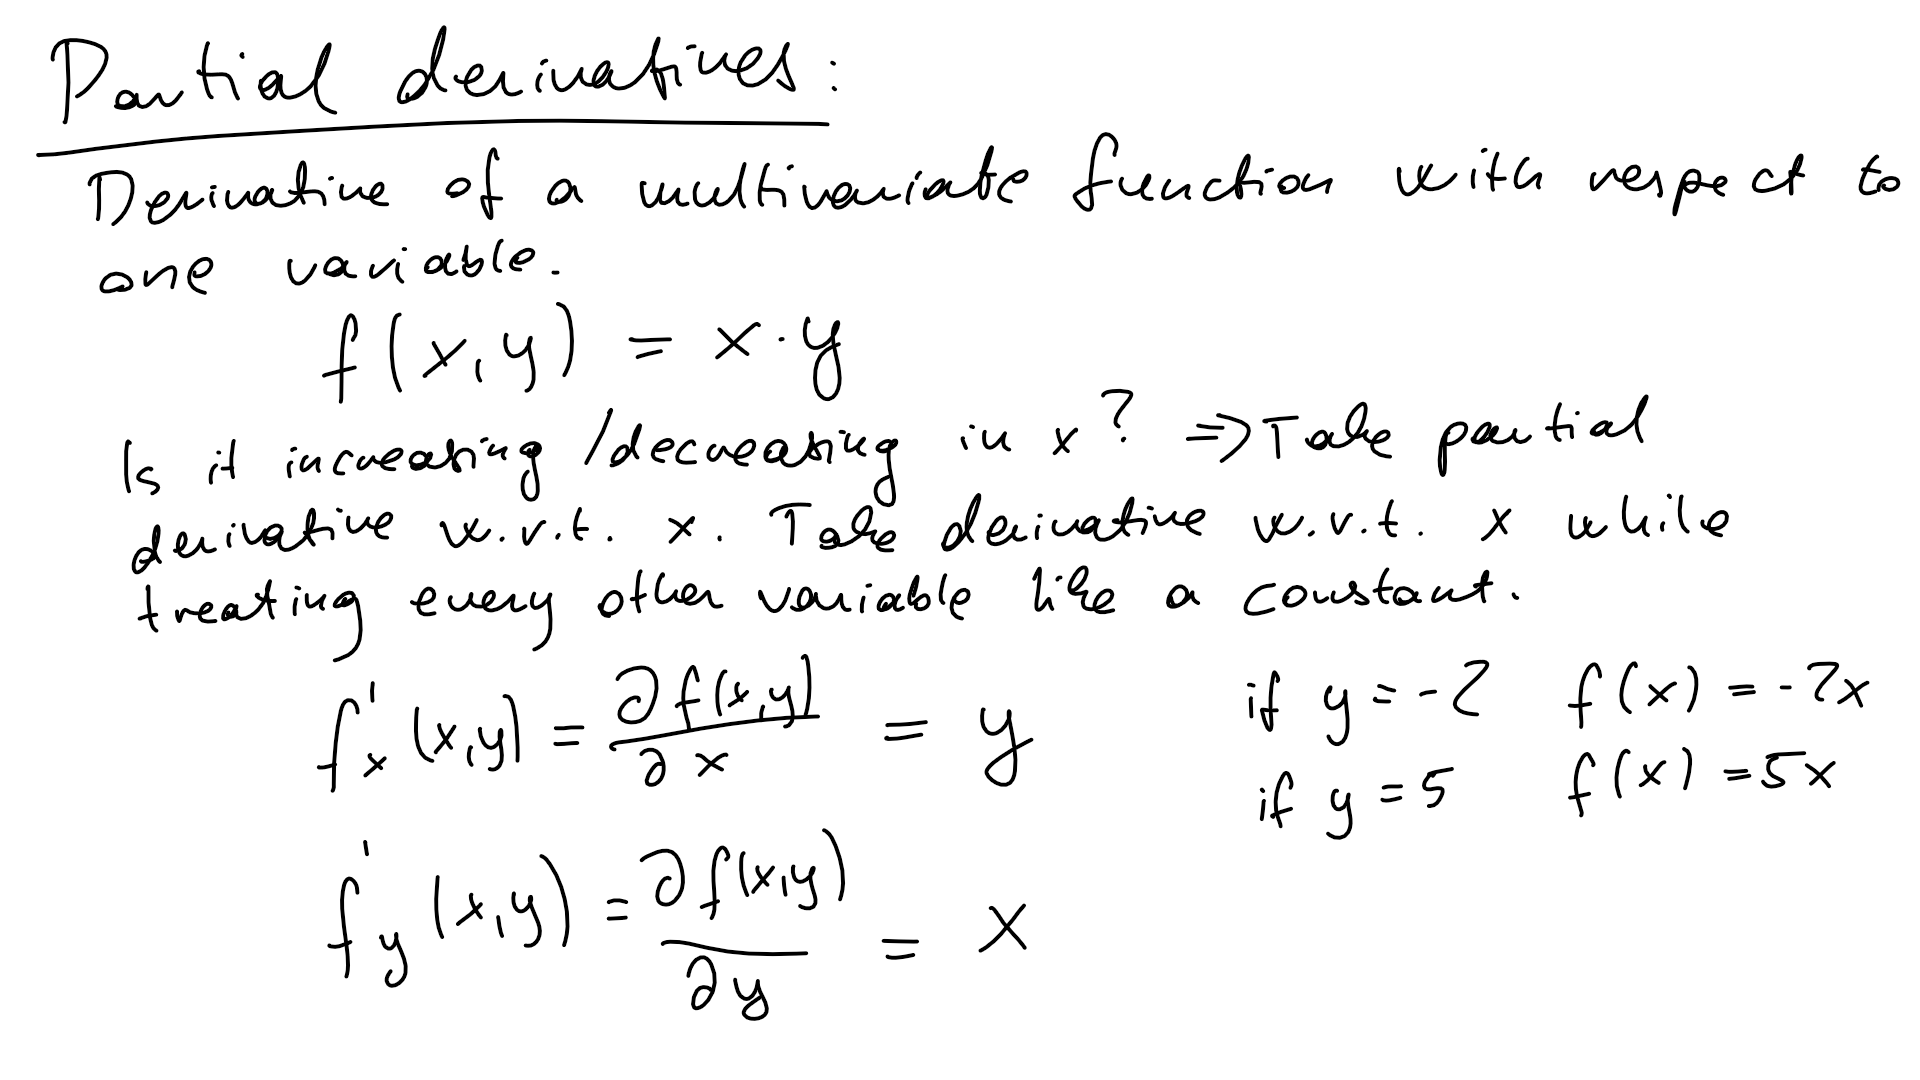 Partial derivatives:
Derivative of a multivariate function with respect to
one variable.
f(x,y) = x·y
Is it increasing/decreasing in x? ⇒ Take partial
derivative w.r.t. x. Take derivative w.r.t. x while
treating every other variable like a constant.
f'x (x,y) = ∂f(x,y)/∂x = y
if y = -2 f(x) = -2x
if y = 5 f(x) = 5x
f'y (x,y) = ∂f(x,y)/∂y = x